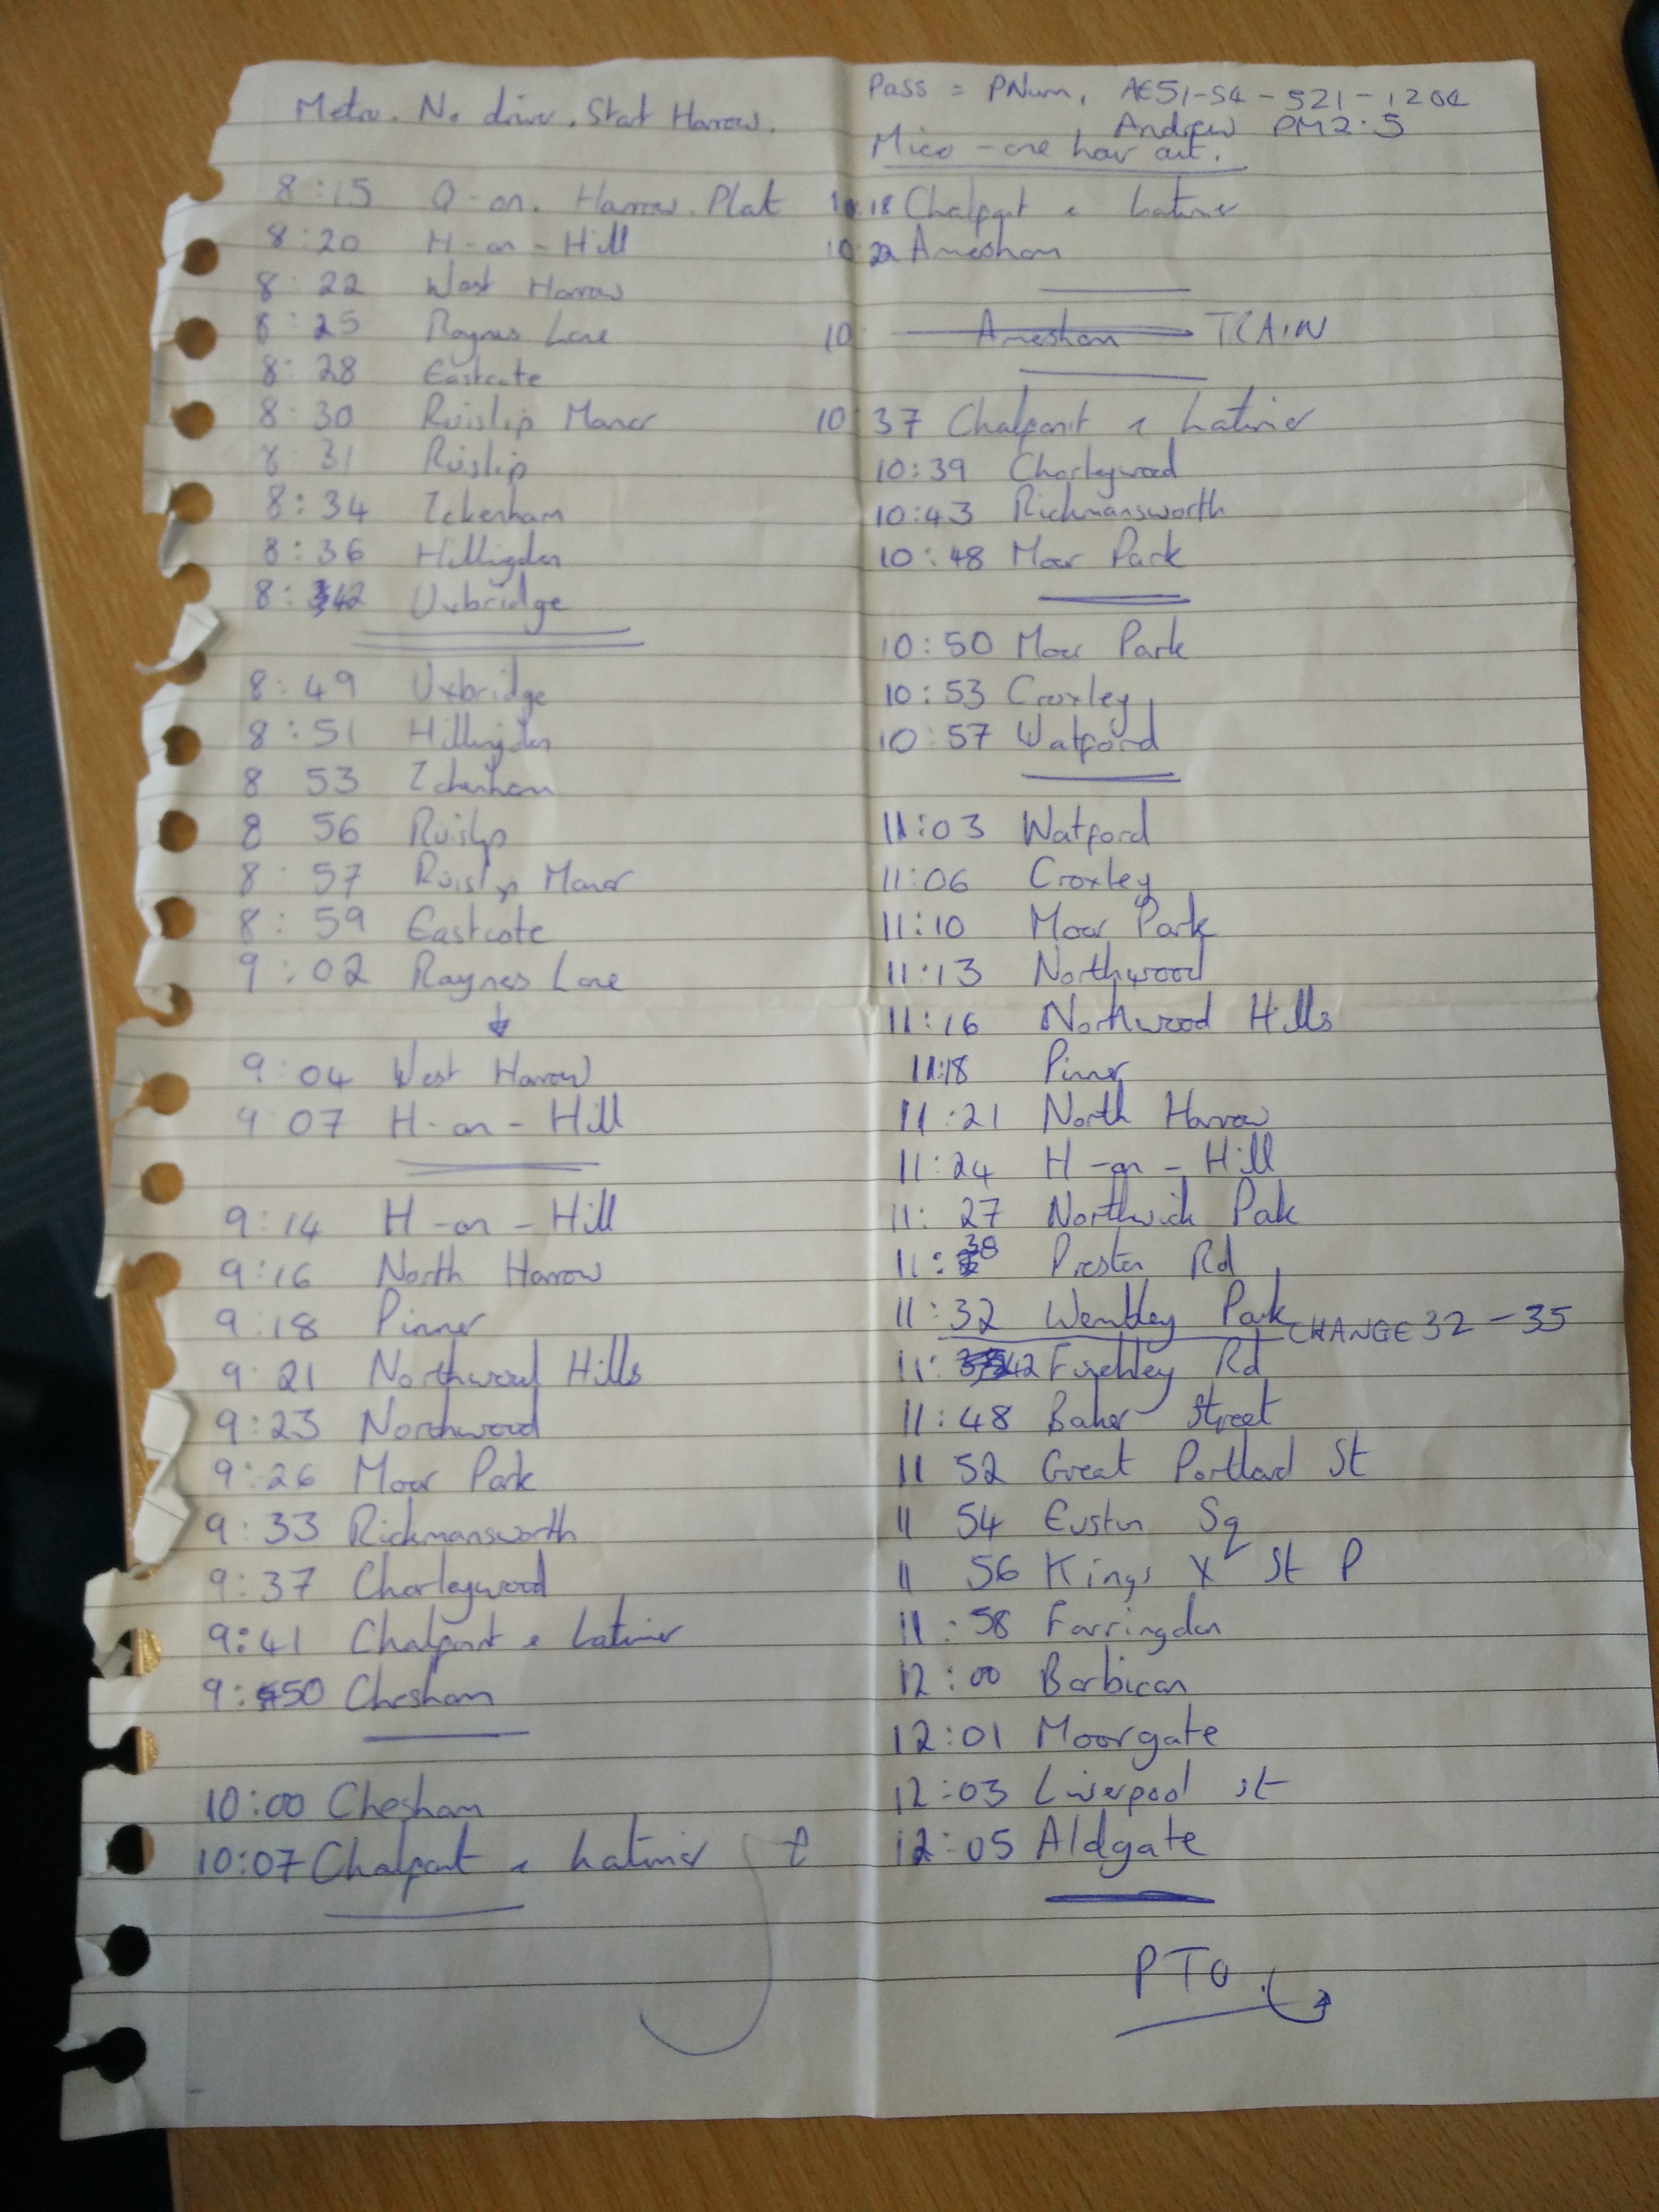 Metro. No driver. Start Harrow.
8:15 Q-on. Harrow. Plat
8:20 H-on-Hill
8:22 West Harrow
8:25 Raynes Lane
8:28 Eastcote
8:30 Ruislip Manor
8:31 Ruislip
8:34 Ickenham
8:36 Hillingdon
8:42 Uxbridge
8:49 Uxbridge
8:51 Hillingdon
8 53 Ickenham
8 56 Ruislip
8:57 Ruislip Manor
8:59 Eastcote
9:02 Raynes Lane
9:04 West Harrow
9 07 H-on-Hill
9:14 H-on-Hill
9:16 North Harrow
9:18 Pinner
9:21 Northwood Hills
9:23 Northwood
9:26 Moor Park
9:33 Rickmansworth
9:37 Chorleywood
9:41 Chalfont & Latimer
9:50 Chesham
10:00 Chesham
10:07 Chalfont & Latimer
Pass = PNum, AE51-S4-521-1204
Andrew PM2.5
Mico - one hour out.
18 Chalfont & Latimer
10 22 Amersham
10 Amersham TRAIN
10 37 Chalfont & Latimer
10:39 Chorleywood
10:43 Rickmansworth
10:48 Moor Park
10:50 Moor Park
10:53 Croxley
10:57 Watford
11:03 Watford
11:06 Croxley
11:10 Moor Park
11:13 Northwood
11:16 Northwood Hills
11:18 Pinner
11:21 North Harrow
11:24 H-on-Hill
11:27 Northwick Park
11:30 Preston Rd
11:32 Wembley Park CHANGE 32-35
11:42 Finchley Rd
11:48 Baker Street
11 52 Great Portland St
11 54 Euston Sq
11 56 Kings X St P
11:58 Farringdon
12:00 Barbican
12:01 Moorgate
12:03 Liverpool st
12:05 Aldgate
PTO.